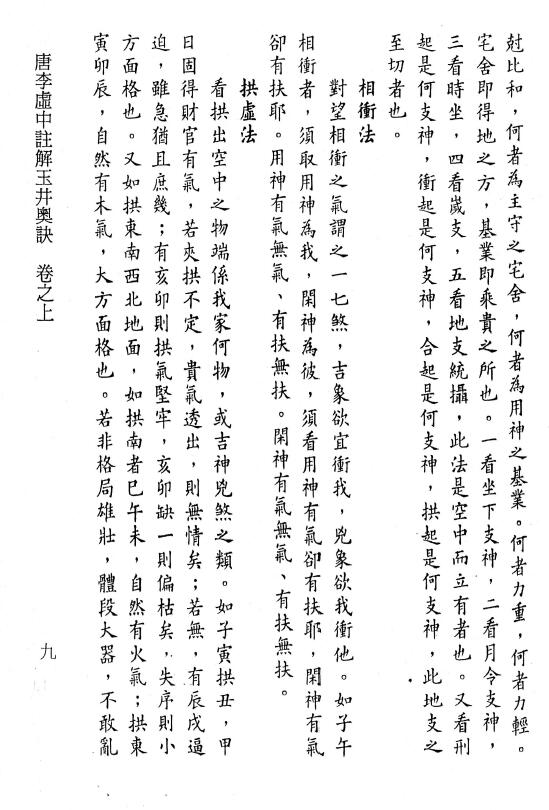 尅比和，何者為主守之宅舍，何者為用神之基業。何者力重，何者力輕。
宅舍即得地之方，基業即乘貴之所也。一看坐下支神，二看月令支神，
三看時坐，四看嵗支，五看地支統攝，此法是空中而立有者也。又看刑
起是何支神，衝起是何支神，合起是何支神，拱起是何支神，此地支之
至切者也。
相衝法
對望相衝之氣謂之一七煞，吉象欲宜衝我，兇象欲我衝他。如子午
相衝者，須取用神為我，閑神為彼，須看用神有氣卻有扶耶，閑神有氣
卻有扶耶。用神有氣無氣、有扶無扶。閑神有氣無氣、有扶無扶。
拱虛法
看拱出空中之物端係我家何物，或吉神兇煞之類。如子寅拱丑，甲
日固得財官有氣，若夾拱不定，貴氣透出，則無情矣；若無，有辰戌逼
迫，雖急猶且庶幾；有亥卯則拱氣堅牢，亥卯缺一則偏枯矣，失序則小
方面格也。又如拱東南西北地面，如拱南者巳午未，自然有火氣；拱東
寅卯辰，自然有木氣，大方面格也。若非格局雄壯，體段大器，不敢亂
唐李虛中註解玉井奧訣　卷之上
九